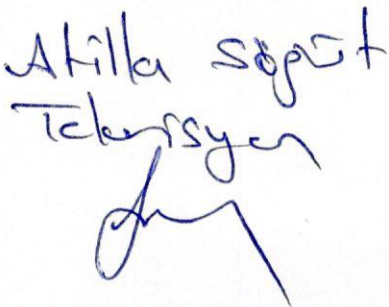 Atilla Söğüt
Teknisyen